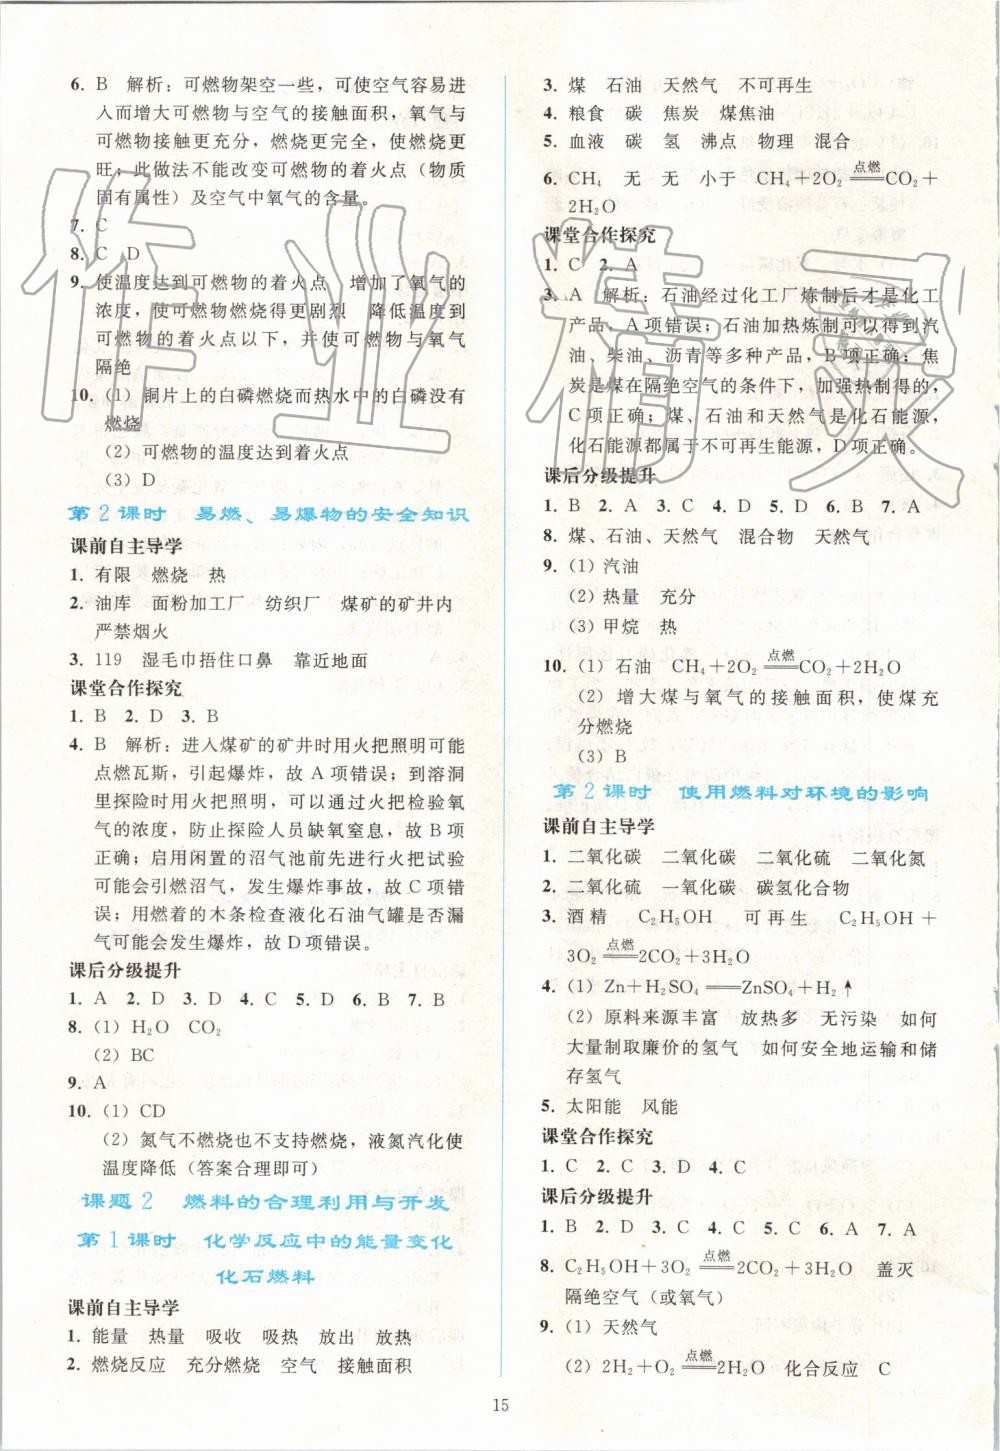 6. B 解析：可燃物架空一些，可使空气容易进
入而增大可燃物与空气的接触面积，氧气与
可燃物接触更充分，燃烧更完全，使燃烧更
旺；此做法不能改变可燃物的着火点（物质
固有属性）及空气中氧气的含量。
7. C
8. C D
9. 使温度达到可燃物的着火点 增加了氧气的
浓度，使可燃物燃烧得更剧烈 降低温度到
可燃物的着火点以下，并使可燃物与氧气
隔绝
10. （1）铜片上的白磷燃烧而热水中的白磷没有
燃烧
（2）可燃物的温度达到着火点
（3）D
第2课时 易燃、易爆物的安全知识
课前自主导学
1. 有限 燃烧 热
2. 油库 面粉加工厂 纺织厂 煤矿的矿井内
严禁烟火
3. 119 湿毛巾捂住口鼻 靠近地面
课堂合作探究
1. B 2. D 3. B
4. B 解析：进入煤矿的矿井时用火把照明可能
点燃瓦斯，引起爆炸，故 A 项错误；到溶洞
里探险时用火把照明，可以通过火把检验氧
气的浓度，防止探险人员缺氧窒息，故 B 项
正确；启用闲置的沼气池前先进行火把试验
可能会引燃沼气，发生爆炸事故，故 C 项错
误；用燃着的木条检查液化石油气罐是否漏
气可能会发生爆炸，故 D 项错误。
课后分级提升
1. A 2. D 3. D 4. C 5. D 6. B 7. B
8. （1）H₂O CO₂
（2）BC
9. A
10. （1）CD
（2）氮气不燃烧也不支持燃烧，液氮汽化使
温度降低（答案合理即可）
课题2 燃料的合理利用与开发
第1课时 化学反应中的能量变化
化石燃料
课前自主导学
1. 能量 热量 吸收 吸热 放出 放热
2. 燃烧反应 充分燃烧 空气 接触面积
3. 煤 石油 天然气 不可再生
4. 粮食 碳 焦炭 煤焦油
5. 血液 碳 氢 沸点 物理 混合
6. CH₄ 无 无 小于 CH₄＋2O₂ 点燃══CO₂＋
2H₂O
课堂合作探究
1. C 2. A
3. A 解析：石油经过化工厂炼制后才是化工
产品，A 项错误；石油加热炼制可以得到汽
油、柴油、沥青等多种产品，B 项正确；焦
炭是煤在隔绝空气的条件下，加强热制得的，
C 项正确；煤、石油和天然气是化石能源，
化石能源都属于不可再生能源，D 项正确。
课后分级提升
1. B 2. A 3. C 4. D 5. D 6. B 7. A
8. 煤、石油、天然气 混合物 天然气
9. （1）汽油
（2）热量 充分
（3）甲烷 热
10. （1）石油 CH₄＋2O₂ 点燃══CO₂＋2H₂O
（2）增大煤与氧气的接触面积，使煤充
分燃烧
（3）B
第2课时 使用燃料对环境的影响
课前自主导学
1. 二氧化碳 二氧化碳 二氧化硫 二氧化氮
2. 二氧化硫 一氧化碳 碳氢化合物
3. 酒精 C₂H₅OH 可再生 C₂H₅OH＋
3O₂ 点燃══2CO₂＋3H₂O
4. （1）Zn＋H₂SO₄══ZnSO₄＋H₂↑
（2）原料来源丰富 放热多 无污染 如何
大量制取廉价的氢气 如何安全地运输和储
存氢气
5. 太阳能 风能
课堂合作探究
1. C 2. C 3. D 4. C
课后分级提升
1. B 2. D 3. C 4. C 5. C 6. A 7. A
8. C₂H₅OH＋3O₂ 点燃══2CO₂＋3H₂O 盖灭
隔绝空气（或氧气）
9. （1）天然气
（2）2H₂＋O₂ 点燃══2H₂O 化合反应 C
15
作业精灵